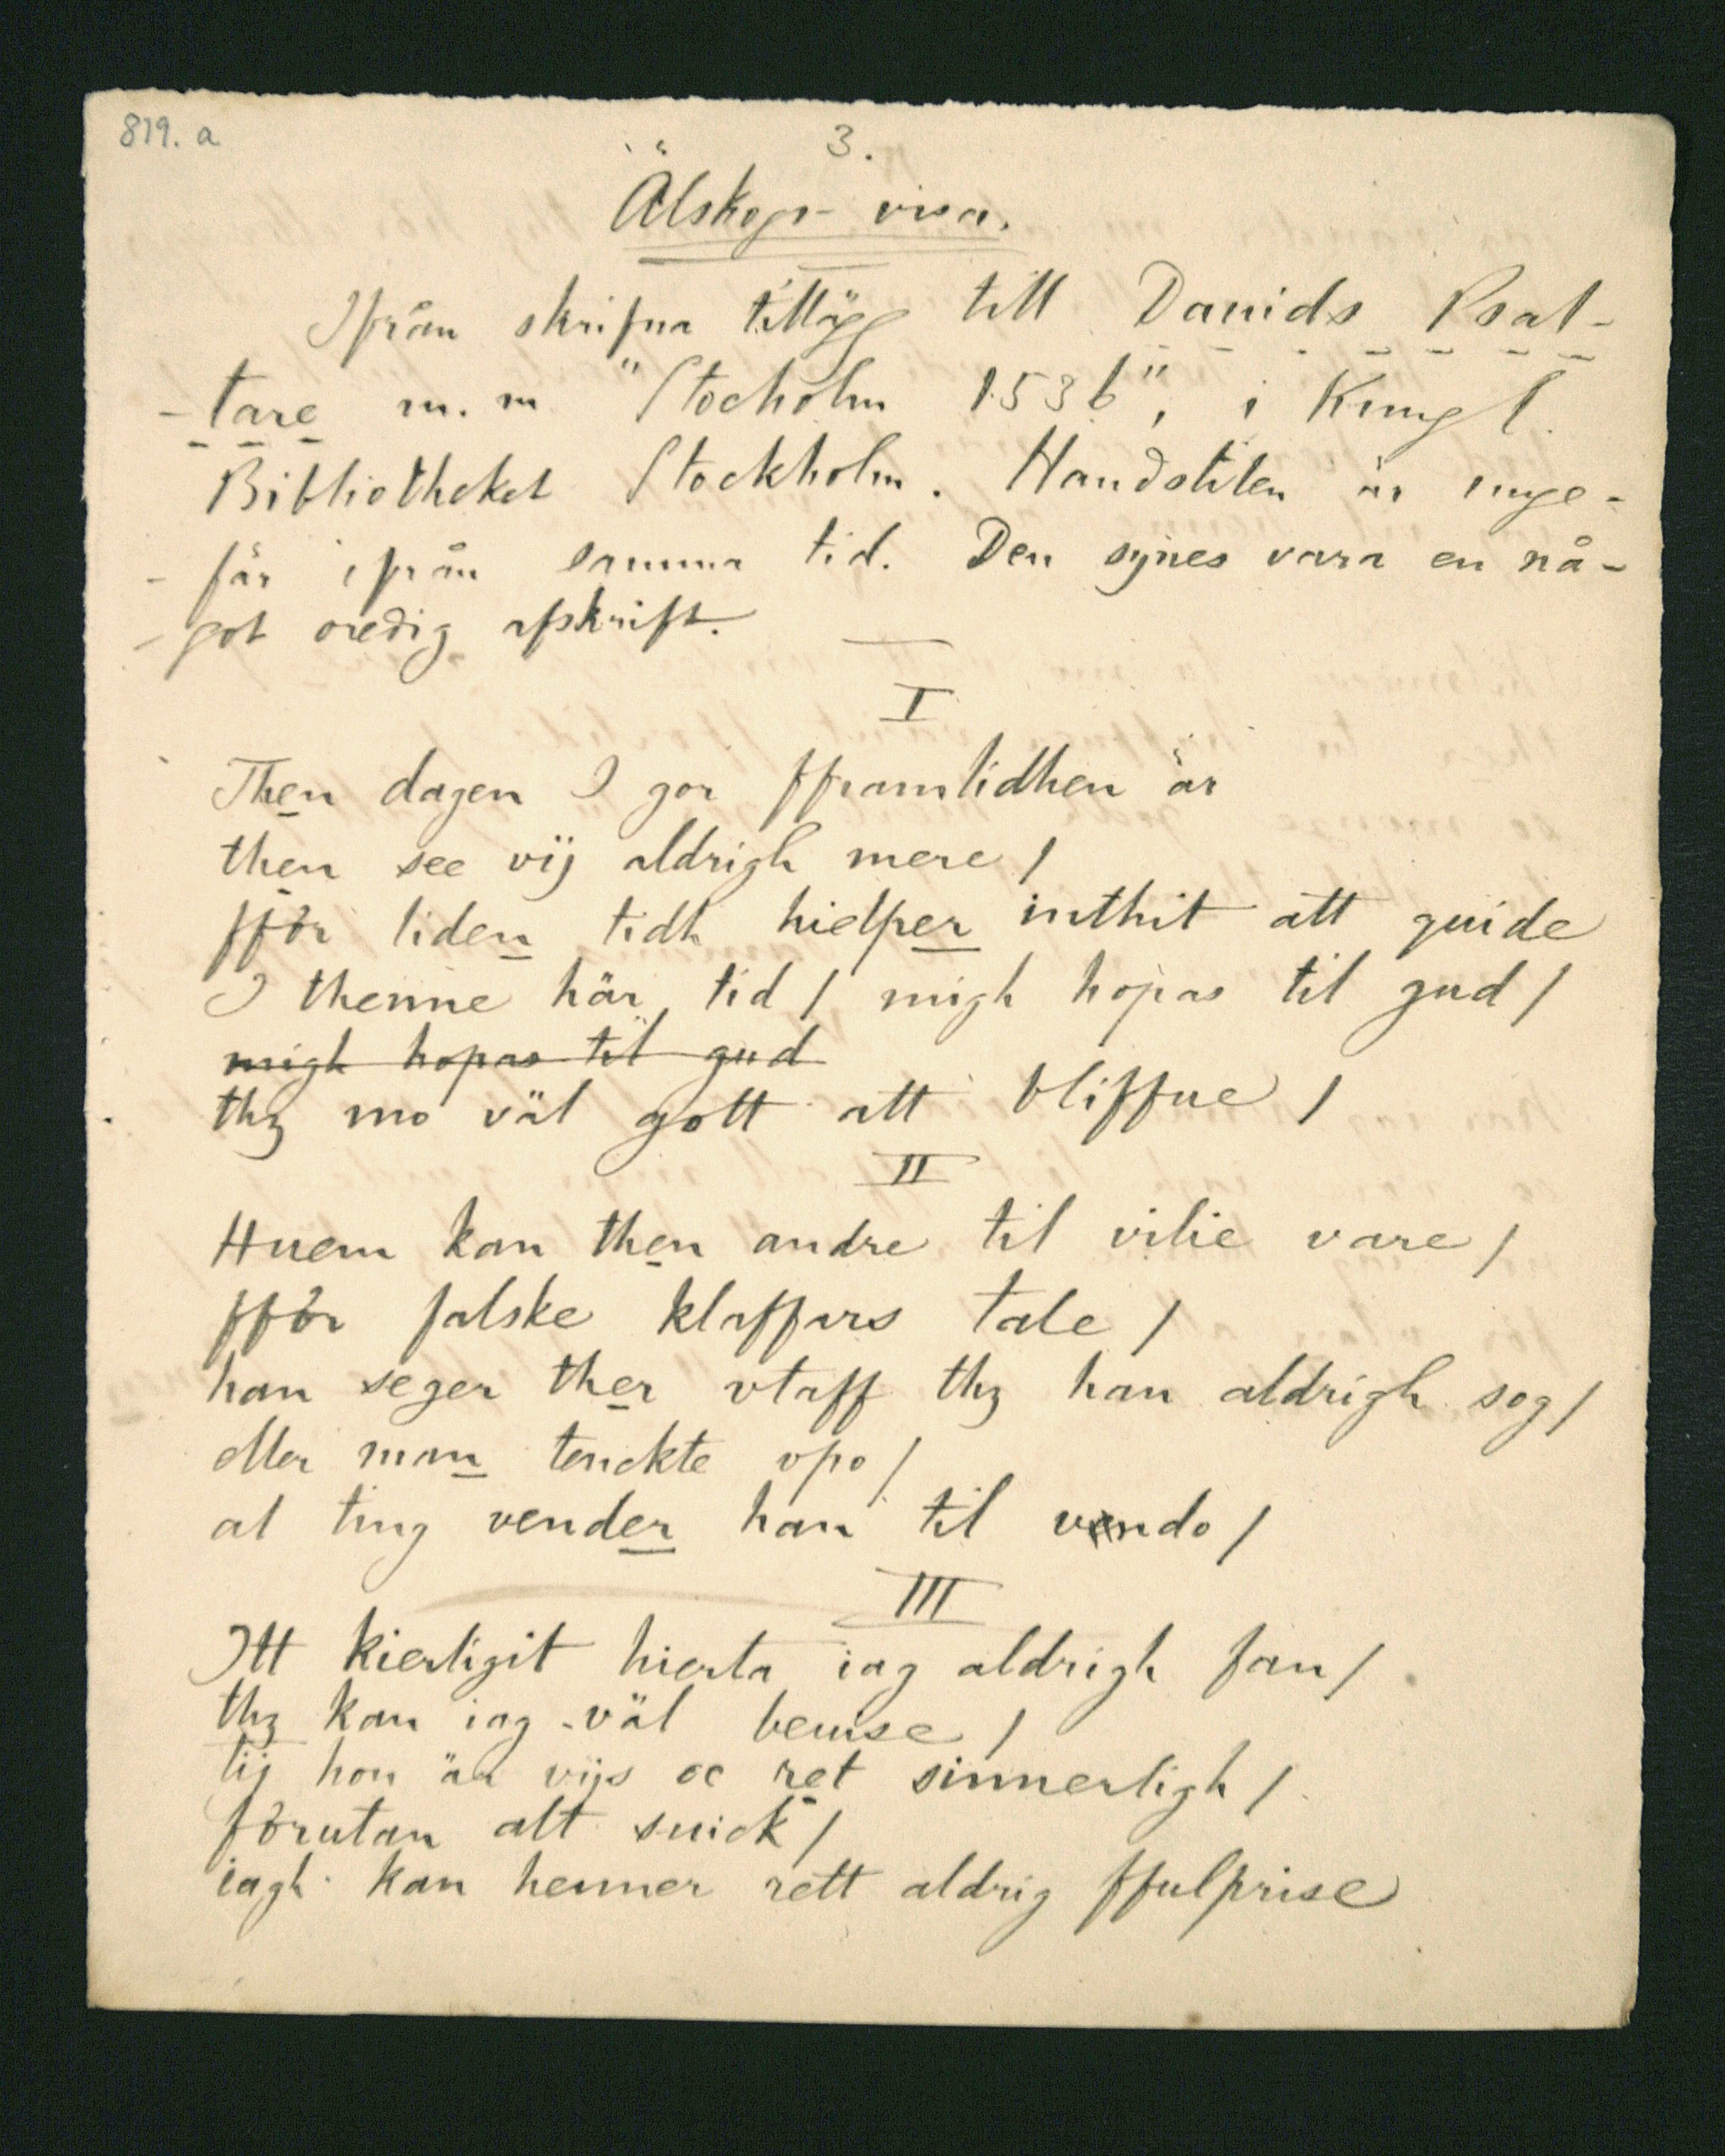 819. a
3.
Älskogs-visa.
Ifrån skrifna tillägg till Dauids Psal-
-tare m. m "Stocholm 1536", i Kungl.
Bibliotheket Stockholm. Handstilen är unge-
-fär ifrån samma tid. Den synes vara en nå-
-got oredig afskrift.
I
Then dagen I gor fframlidhen är
then see vij aldrigh mere /
fför liden tidh hielper inthit att quide
I thenne här tid / migh hopas til gud /
migh hopas til gud
thz mo väl gott att bliffue /
II
Huem kan then andre til vilie vare /
fför falske klaffars tale /
han seger ther vtaff thz han aldrigh sog /
eller man tenckte vpo /
al ting vender han til vando /
III
Itt kierligit hierta iag aldrigh fan /
thz kan iag väl beuise /
tij hon är vijs oc ret sinnerligh /
förutan alt suick /
iagh kan henner rett aldrig ffulprise